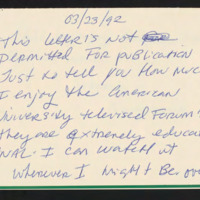 03/23/92
This letter is not
permitted for publication
Just to tell you How much
I enjoy the American
University televised Forum
they are extremely educa
NAL. I can watch it
wherever I might Be over